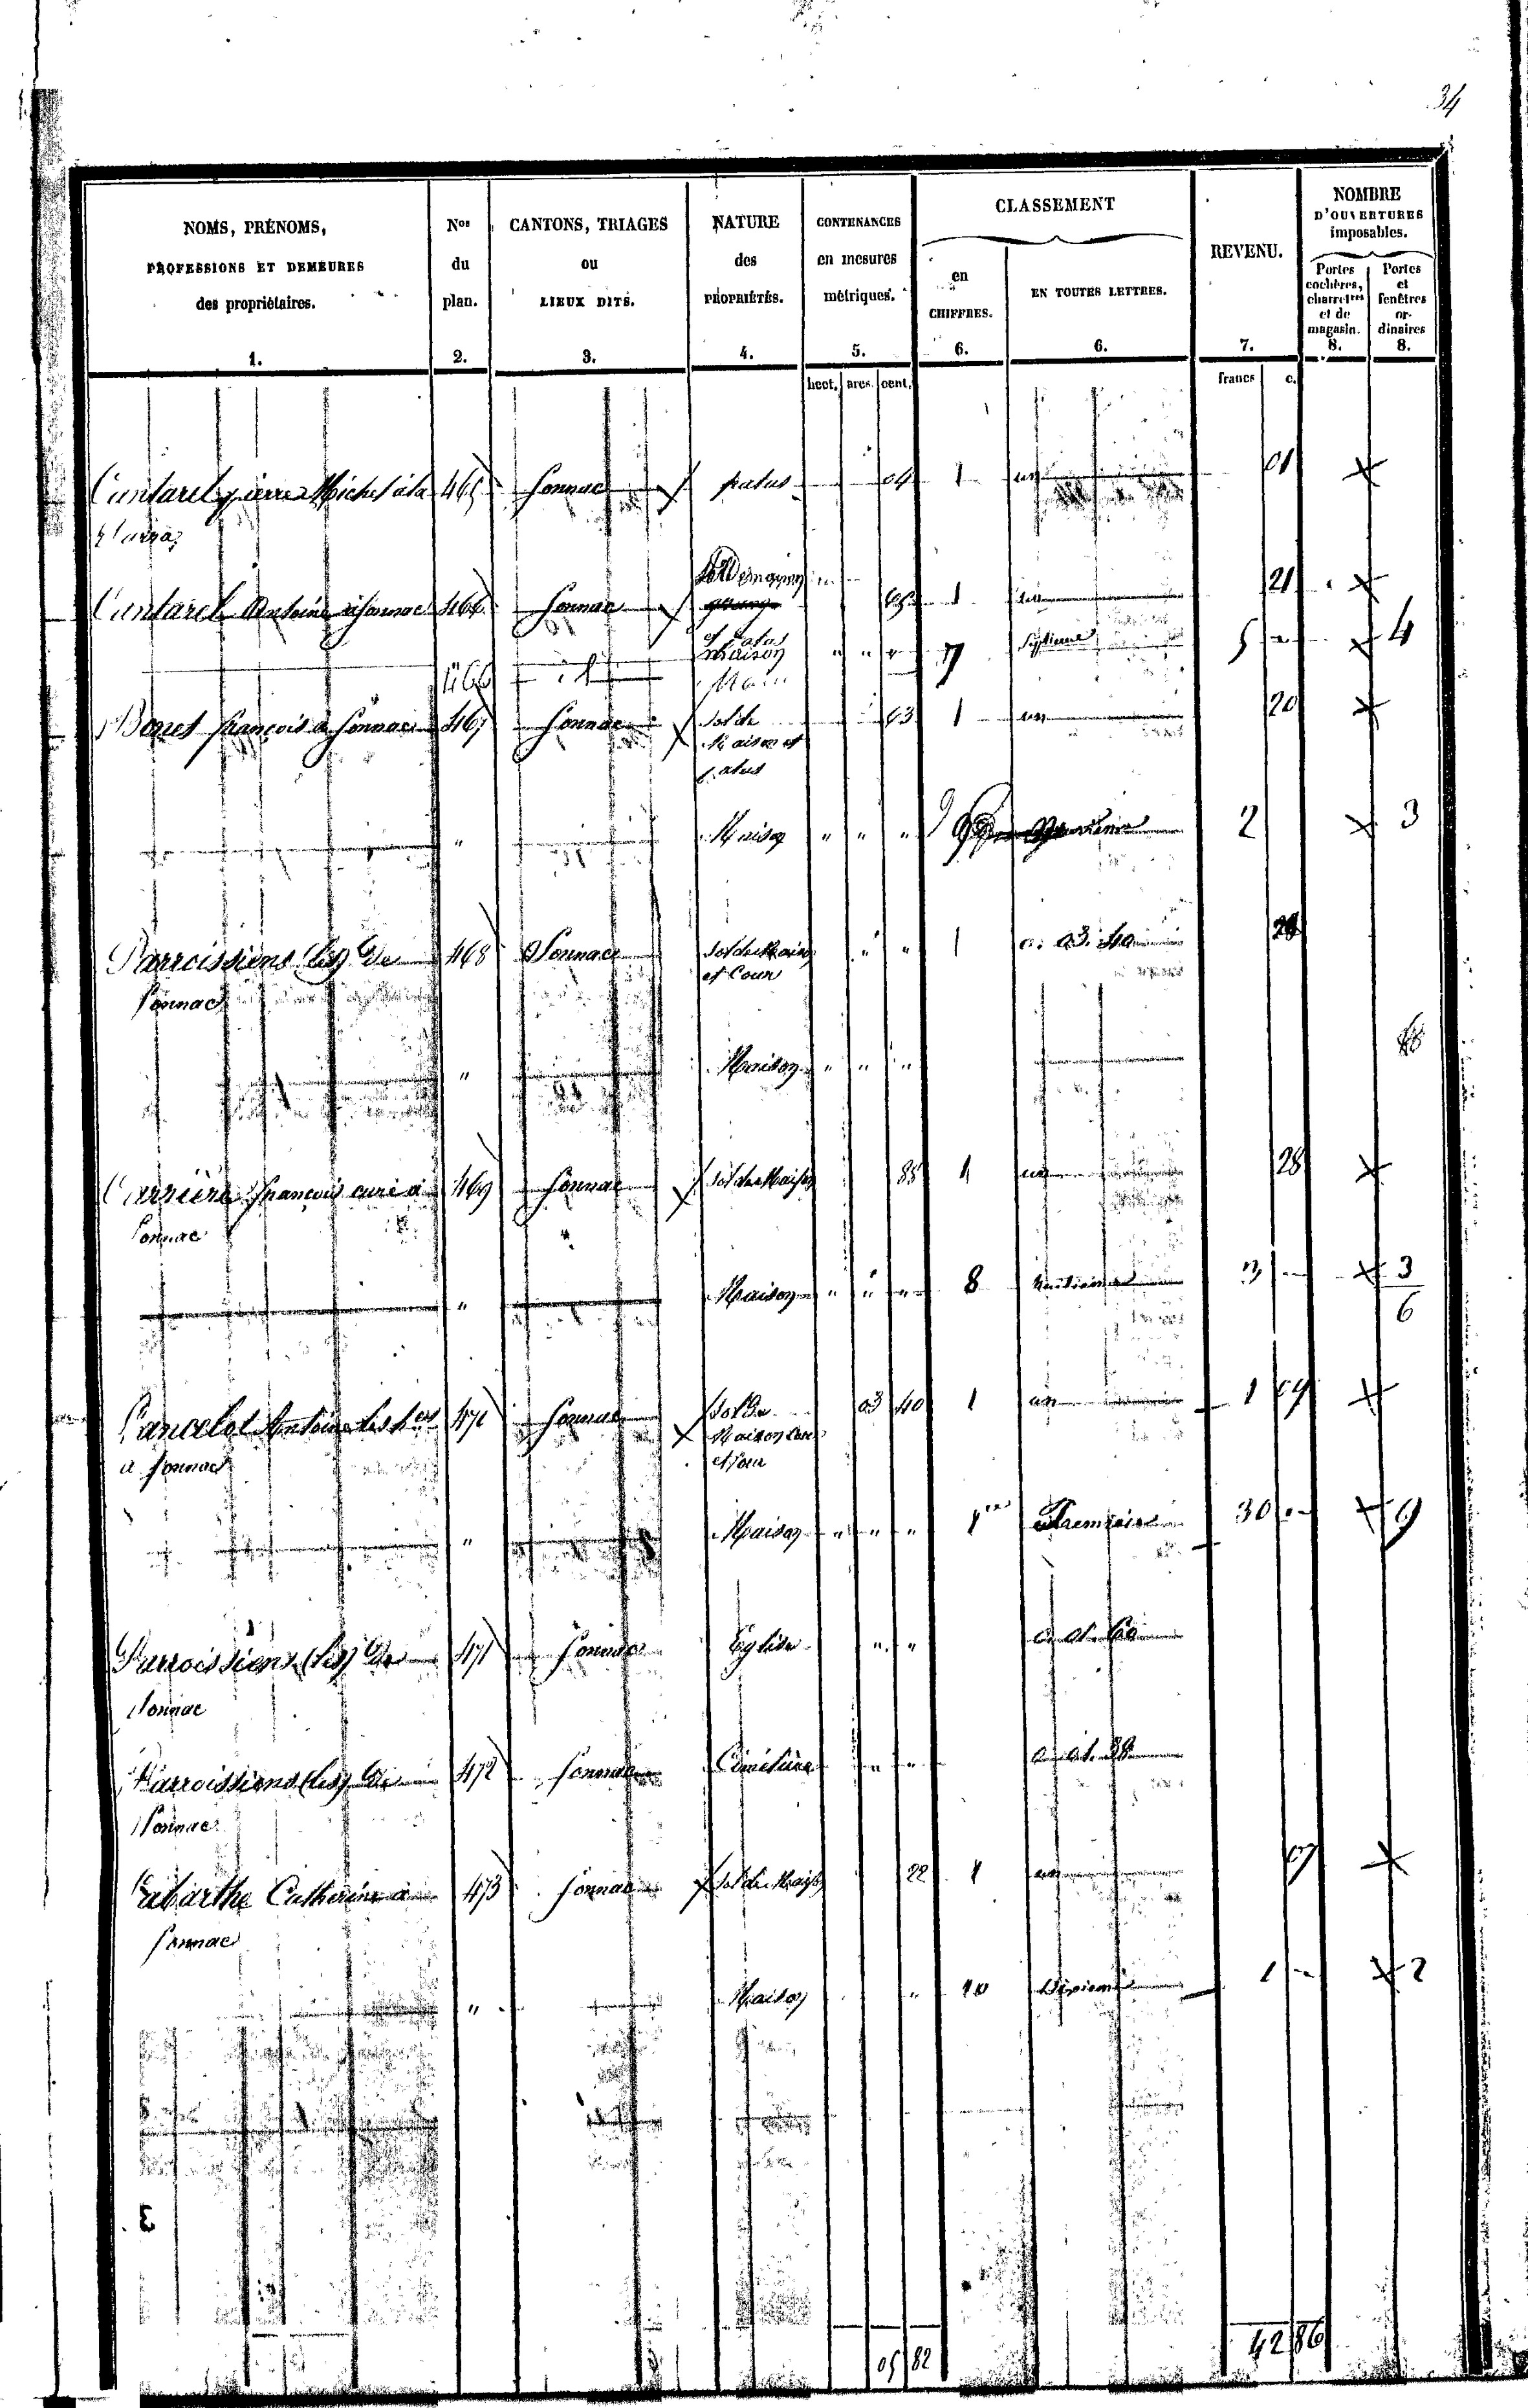 34
NOMS, PRÉNOMS, PROFESSIONS ET DEMEURES des propriétaires. 1.
Nos du plan. 2.
CANTONS, TRIAGES ou LIEUX DITS. 3.
NATURE des PROPRIÉTÉS. 4.
CONTENANCES en mesures métriques. 5.
CLASSEMENT
en CHIFFRES. 6.
EN TOUTES LETTRES. 6.
REVENU. 7.
NOMBRE D'OUVERTURES imposables.
Portes cochères, charretres et de magasin. 8.
Portes et fenêtres or-dinaires 8.
hect. ares. cent. francs c.
Cantarel pierre Michel à la 465 Sonnac patus 04 1 un 01
Cantarel Antoine à Sonnac 466 Sonnac 65 1 un 21
et patus
466 id maison " " " 7 septieme 5 " 4
Bories françois à Sonnac 467 Sonnac Sol de 63 1 un 20
Maison et
patus
" Maison " " " 9 2 3
Parroissiens (les) de 468 Sonnac Sol de Maison " " 1 0. 03. 40
Sonnac et Cour
" Maison " " "
Carrière françois curé à 469 Sonnac Sol de Maison 88 1 un 28
Sonnac
" Maison " " " 8 huitieme 3 " 3
6
Lancelot Antoine les hers 470 Sonnac Sol de 03 40 1 un 1 09
à Sonnac Maison Cour
et four
" Maison " " " 1ere Premiere 30 " 9
Parroissiens (les) de 471 Sonnac Eglise " "
Sonnac
Parroissiens (les) de 472 Sonnac Cimetière " "
Sonnac
Labarthe Catherine à 473 Sonnac Sol de Maison 22 1 un 07
Sonnac
" Maison " 10 Dixieme 1 " 2
05 82 42 86